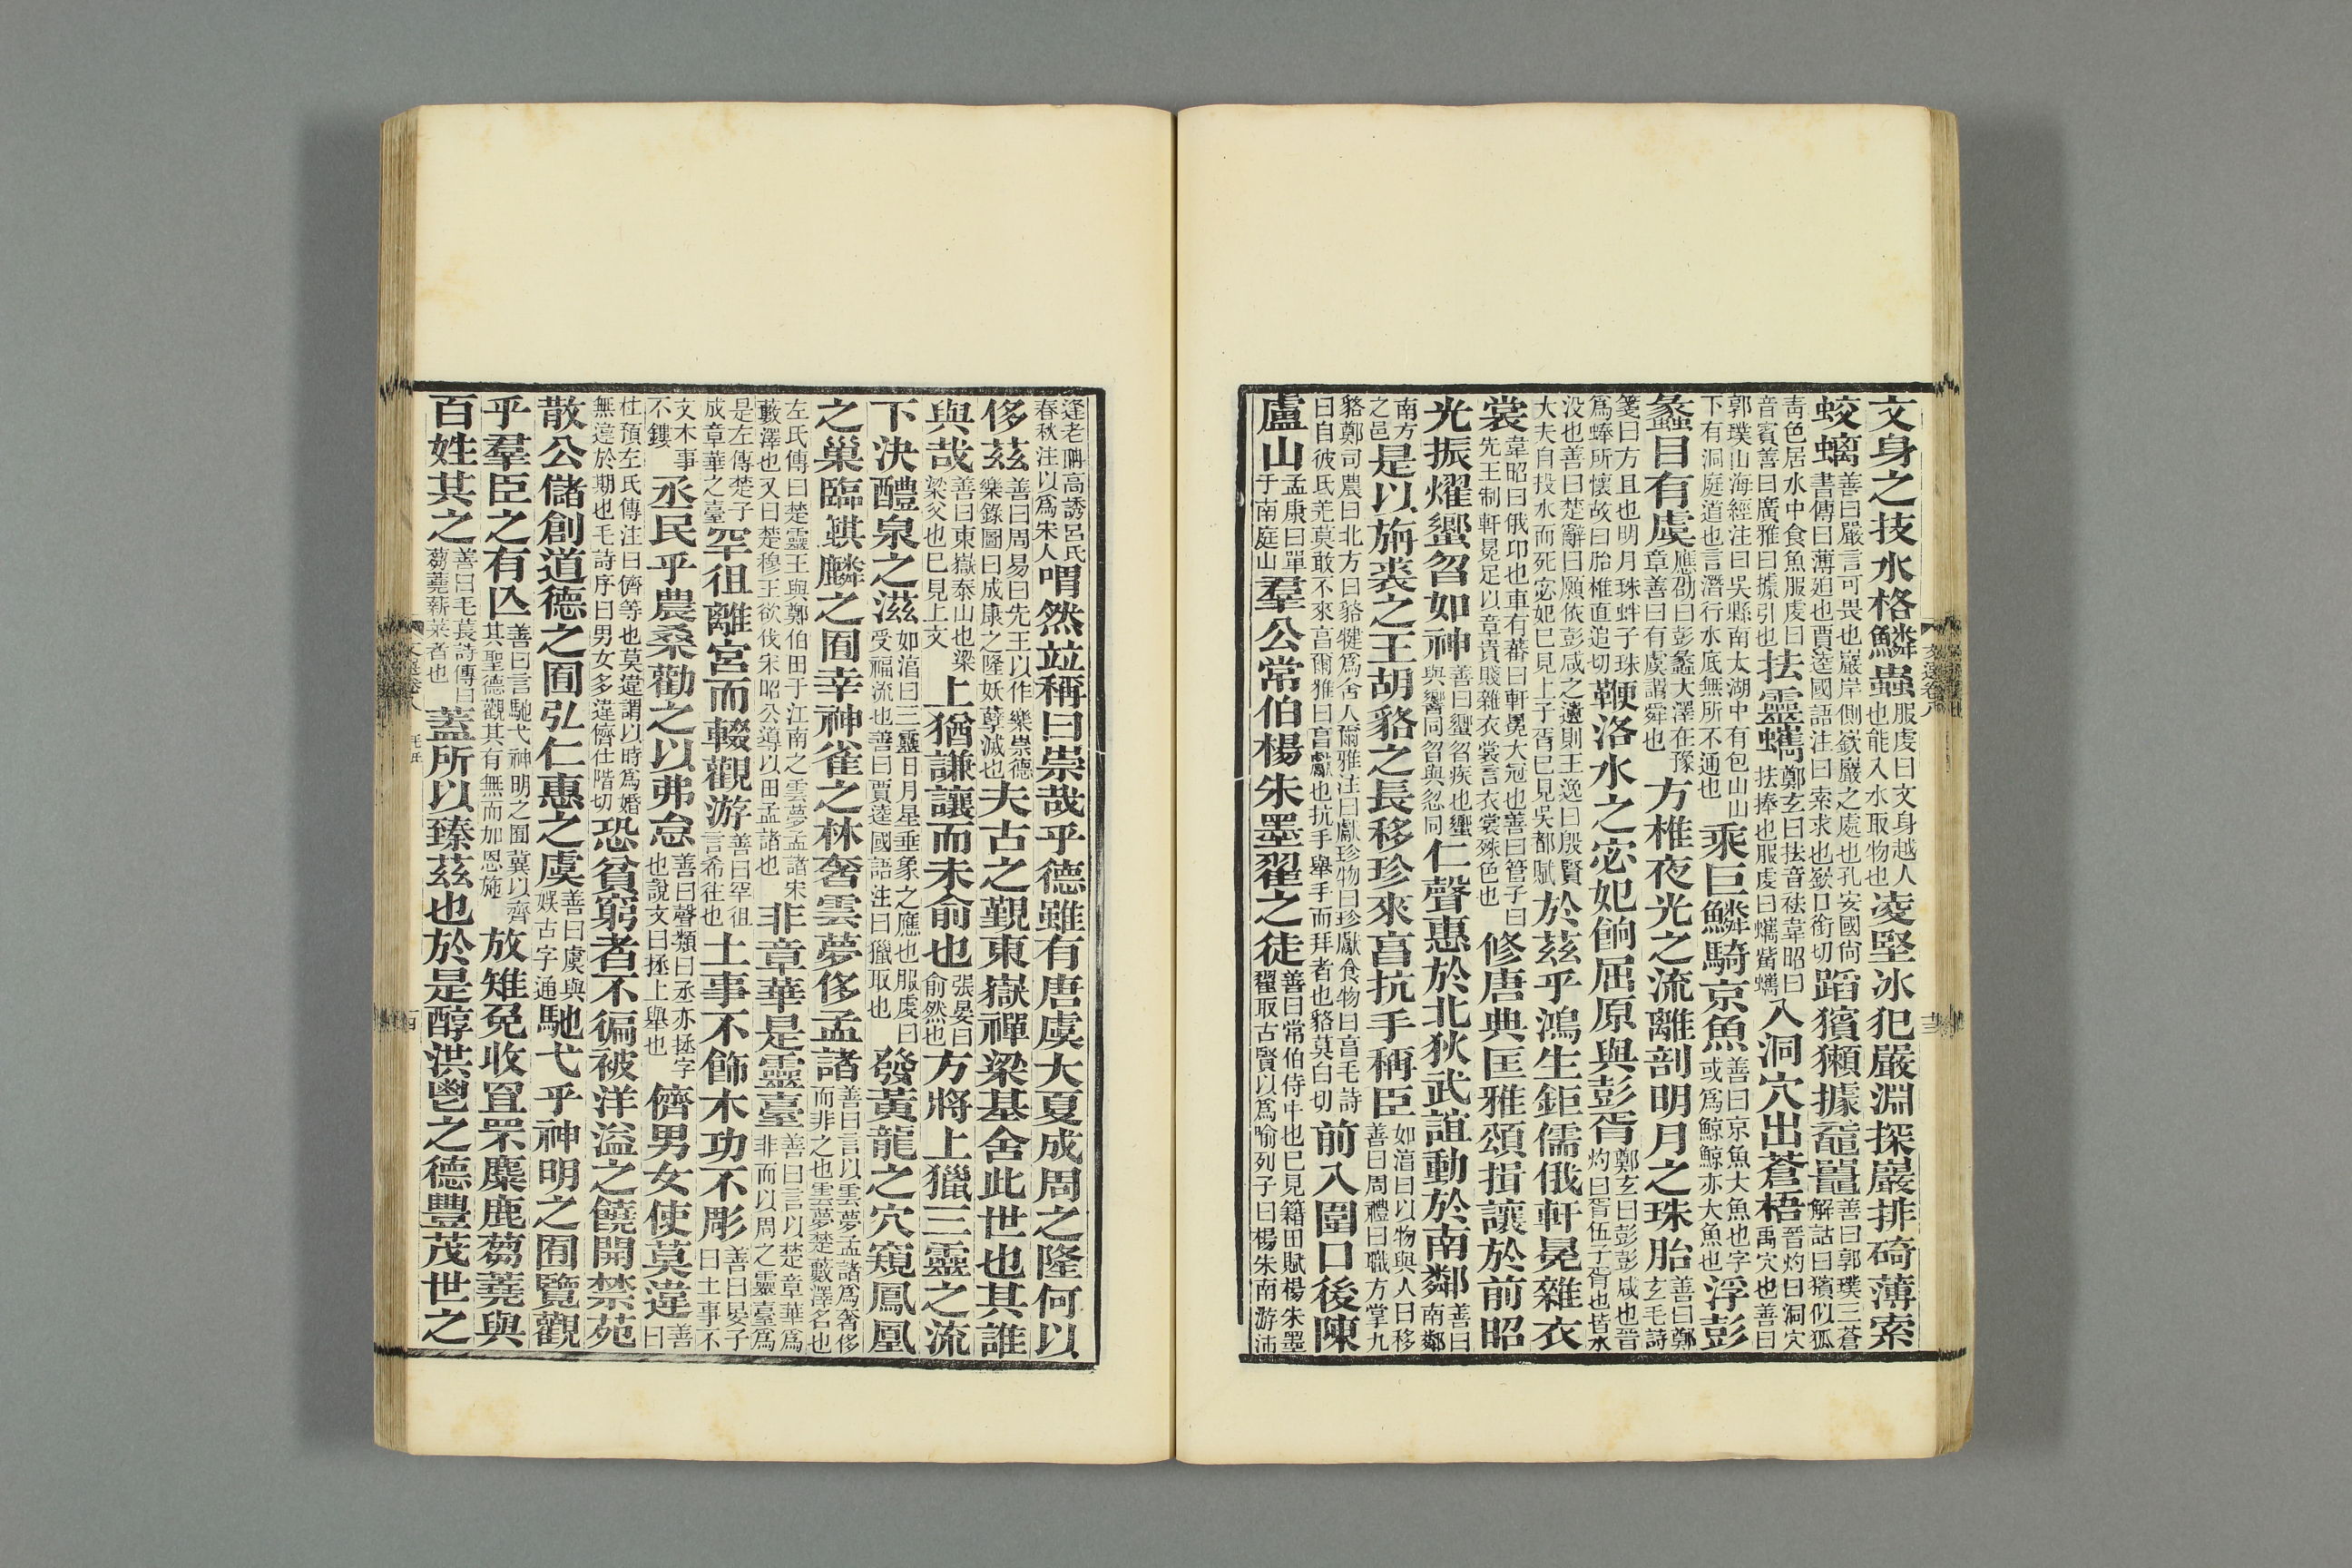 文身之技水格鱗蟲服虔曰文身越人也能入水取物也凌堅冰犯嚴淵探巖排碕薄索
蛟螭善曰嚴言可畏也巖岸側嶔巖之處也孔安國尙書傳曰薄迫也賈逵國語注曰索求也嶔口銜切蹈獱獺據黿鼉善曰郭璞三蒼解詁曰獱似狐
靑色居水中食魚服虔曰音賓善曰廣雅曰據引也抾靈蠵鄭玄曰抾音祛韋昭曰抾捧也服虔曰蠵觜蠵入洞穴出蒼梧晉灼曰洞穴禹穴也善曰
郭璞山海經注曰吳縣南太湖中有包山山下有洞庭道也言潛行水底無所不通也乘巨鱗騎京魚善曰京魚大魚也字或爲鯨鯨亦大魚也浮彭
蠡目有虞應劭曰彭蠡大澤在豫章善曰有虞謂舜也方椎夜光之流離剖明月之珠胎善曰鄭玄毛詩
箋曰方且也明月珠蚌子珠爲蜯所懷故曰胎椎直追切鞭洛水之宓妃餉屈原與彭胥鄭玄曰彭彭咸也晉灼曰胥伍子胥也皆水
没也善曰楚辭曰願依彭咸之遺則王逸曰殷賢大夫自投水而死宓妃巳見上子胥巳見吳都賦於茲乎鴻生鉅儒俄軒冕雜衣
裳韋昭曰俄卬也車有蕃曰軒冕大冠也善曰管子曰先王制軒冕足以章貴賤雜衣裳言衣裳殊色也修唐典匡雅頌揖讓於前昭
光振燿蠁曶如神善曰蠁曶疾也蠁與響同曶與忽同仁聲惠於北狄武誼動於南鄰善曰南鄰
南方之邑是以旃裘之王胡貉之長移珍來享抗手稱臣如淳曰以物與人曰移善曰周禮曰職方掌九
貉鄭司農曰北方曰貉犍爲舍人爾雅注曰獻珍物曰珍獻食物曰享毛詩曰自彼氐羌莫敢不來享爾雅曰享獻也抗手舉手而拜者也貉莫白切前入圍口後陳
盧山孟康曰單于南庭山羣公常伯楊朱墨翟之徒善曰常伯侍中也巳見籍田賦楊朱墨翟取古賢以爲喻列子曰楊朱南游沛
逢老聃高誘呂氏春秋注以爲宋人喟然竝稱曰崇哉乎德雖有唐虞大夏成周之隆何以
侈茲善曰周易曰先王以作樂崇德樂錄圖曰成康之隆妖孽滅也夫古之覲東嶽禪梁基舍此世也其誰
與哉善曰東嶽泰山也梁梁父也巳見上文上猶謙讓而未俞也張晏曰俞然也方將上獵三靈之流
下決醴泉之滋如淳曰三靈日月星垂象之應也服虔曰受福流也善曰賈逵國語注曰獵取也發黃龍之穴窺鳳凰
之巢臨麒麟之囿幸神雀之林奢雲夢侈孟諸善曰言以雲夢孟諸爲奢侈而非之也雲夢楚藪澤名也
左氏傳曰楚靈王與鄭伯田于江南之雲夢孟諸宋藪澤也又曰楚穆王欲伐宋昭公導以田孟諸也非章華是靈臺善曰言以楚章華爲非而以周之靈臺爲
是左傳楚子成章華之臺罕徂離宮而輟觀游善曰罕徂言希往也土事不飾木功不彫善曰晏子曰土事不
文木事不鏤丞民乎農桑勸之以弗怠善曰聲類曰丞亦拯字也說文曰拯上舉也儕男女使莫違善曰
杜預左氏傳注曰儕等也莫違謂以時爲婚無違於期也毛詩序曰男女多違儕仕階切恐貧窮者不徧被洋溢之饒開禁苑
散公儲創道德之囿弘仁惠之虞善曰虞與娛古字通馳弋乎神明之囿覽觀
乎羣臣之有亾善曰言馳弋神明之囿冀以齊其聖德觀其有無而加恩施放雉兔收罝罘麋鹿芻蕘與
百姓共之善曰毛萇詩傳曰芻蕘薪菜者也蓋所以臻茲也於是醇洪鬯之德豐茂世之